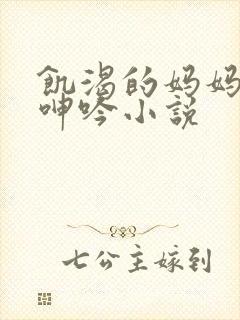 飢渴的妈妈
呻吟小説
七公主嫁到